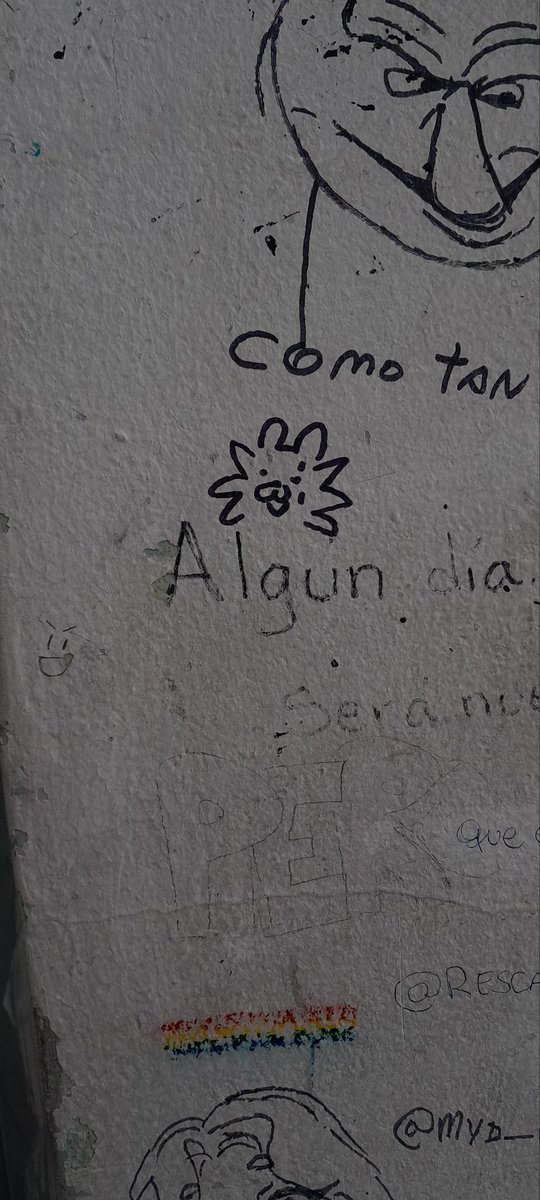 Como tan
Algún día.
Será nue
PER
que e
@RESCA
@MYD_